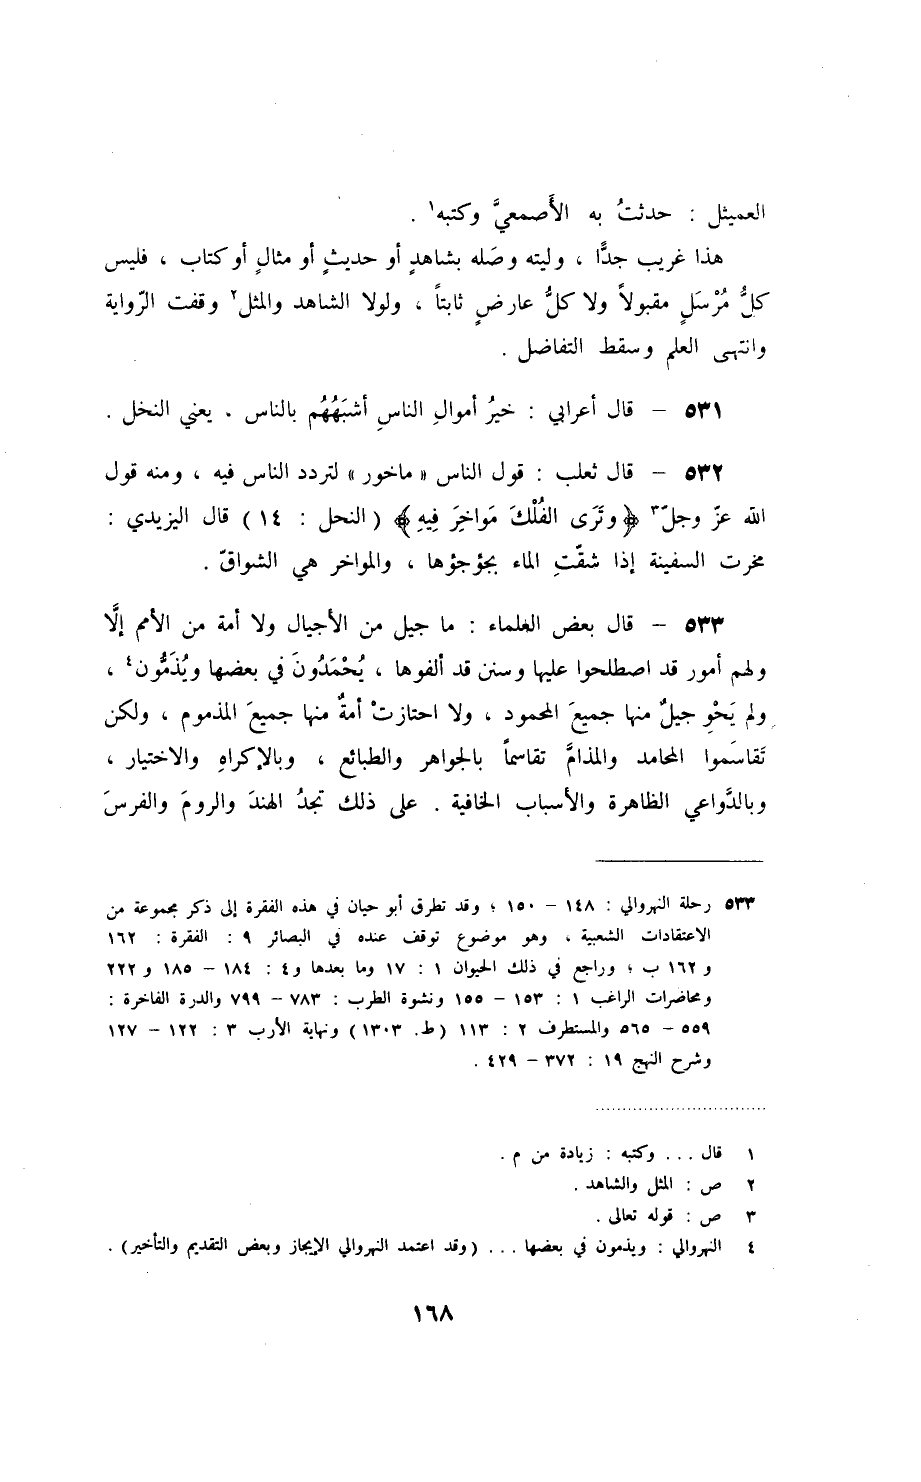 العميثل : حدثتُ به الأَصمعيَّ وكتبه١ .
هذا غريب جدًّا ، وليته وصَله بشاهدٍ أو حديثٍ أو مثالٍ أو كتاب ، فليس
كلُّ مُرْسَلٍ مقبولاً ولا كلُّ عارضٍ ثابتاً ، ولولا الشاهد والمثل٢ وقفت الرّواية
وانتهى العلم وسقط التفاضل .
٥٣١ – قال أعرابي : خيرُ أموالِ الناسِ أشبَهُهُم بالناس . يعني النخل .
٥٣٢ – قال ثعلب : قول الناس « ماخور » لتردد الناس فيه ، ومنه قول
الله عزّ وجلّ٣ ﴿وتَرَى الفُلْكَ مَواخِرَ فِيهِ﴾ ( النحل : ١٤ ) قال اليزيدي :
مخرت السفينة إذا شقّتِ الماء بجؤجؤها ، والمواخر هي الشواقّ .
٥٣٣ – قال بعض العلماء : ما جيل من الأجيال ولا أمة من الأمم إلَّا
ولهم أمور قد اصطلحوا عليها وسنن قد ألفوها ، يُحْمَدُونَ في بعضها ويُذَمُّون٤ ،
ولم يَحْوِ جيلٌ منها جميعَ المحمود ، ولا احتازتْ أمةٌ منها جميعَ المذموم ، ولكن
تَقاسَموا المحامد والمذامَّ تقاسماً بالجواهر والطبائع ، وبالإكراهِ والاختيار ،
وبالدَّواعي الظاهرة والأسباب الخافية . على ذلك تجدُ الهندَ والرومَ والفرسَ
٥٣٣ رحلة النهروالي : ١٤٨ – ١٥٠ ؛ وقد تطرق أبو حيان في هذه الفقرة إلى ذكر مجموعة من
الاعتقادات الشعبية ، وهو موضوع توقف عنده في البصائر ٩ : الفقرة : ١٦٢
و ١٦٢ ب ؛ وراجع في ذلك الحيوان ١ : ١٧ وما بعدها و٤ : ١٨٤ – ١٨٥ و ٢٢٢
ومحاضرات الراغب ١ : ١٥٣ – ١٥٥ ونشوة الطرب : ٧٨٣ – ٧٩٩ والدرة الفاخرة :
٥٥٩ – ٥٦٥ والمستطرف ٢ : ١١٣ (ط. ١٣٠٣) ونهاية الأرب ٣ : ١٢٢ – ١٢٧
وشرح النهج ١٩ : ٣٧٢ – ٤٢٩ .
١ قال ... وكتبه : زيادة من م .
٢ ص : المثل والشاهد .
٣ ص : قوله تعالى .
٤ النهروالي : ويذمون في بعضها ... (وقد اعتمد النهروالي الإيجاز وبعض التقديم والتأخير) .
١٦٨